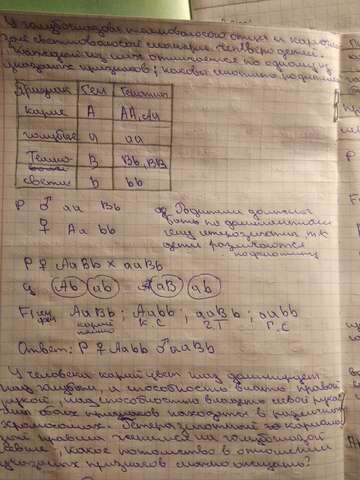 У голубоглазого темноволосого отца и кареглазой
светловолосой матери четверо детей.
Каждый из них отличается по одному из
указанных признаков; каковы генотипы родителей
Признак Ген Генотип
карие А АА, Аа
голубые а аа
Темно В Bb, BB
светлые b bb
Р ♂ аа Bb
♀ Аа bb
Родители должны
быть по доминантному
гену гетерозиготны, т.к
дети различаются
по фенотипу
Р ♀ Aabb × aaBb
g Ab ab aB ab
F1 AaBb; Aabb; aaBb; aabb
карие темно к с ; г т ; г. с
Ответ: Р ♀ Aabb ♂ aaBb
У человека карий цвет глаз доминирует
над голубым, а способность владеть правой
рукой над способностью владеть левой рукой
обоих признаков находятся в различных
хромосомах. Гетерозиготный по карим
правша женился на голубоглазой
левше, какое потомство в отношении
указанных признаков можно ожидать?